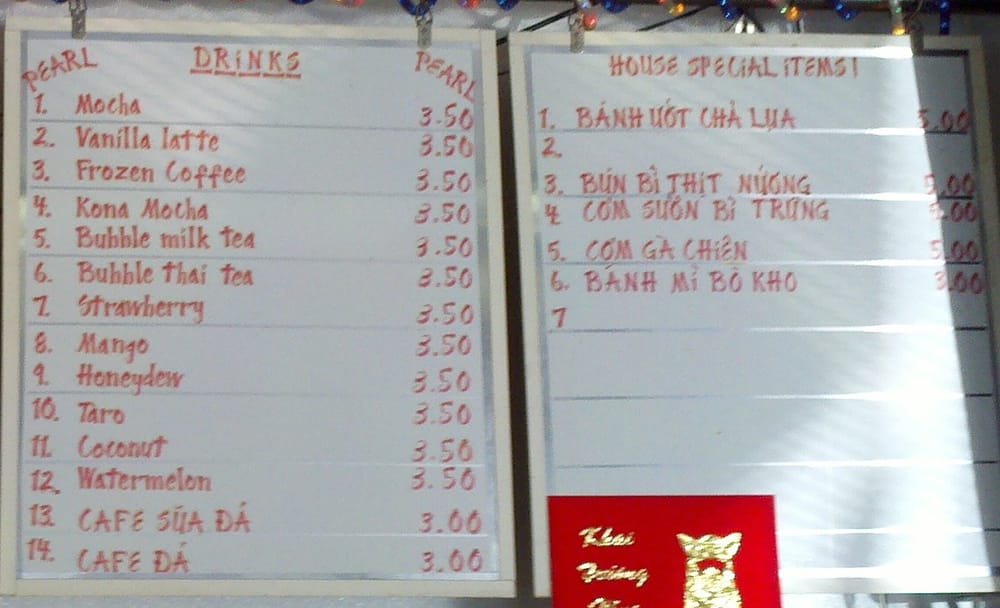 PEARL DRINKS PEARL
1. Mocha 3.50
2. Vanilla latte 3.50
3. Frozen Coffee 3.50
4. Kona Mocha 3.50
5. Bubble milk tea 3.50
6. Bubble thai tea 3.50
7. Strawberry 3.50
8. Mango 3.50
9. Honeydew 3.50
10. Taro 3.50
11. Coconut 3.50
12. Watermelon 3.50
13. CAFE SỮA ĐÁ 3.00
14. CAFE ĐÁ 3.00
HOUSE SPECIAL ITEMS!
1. BÁNH ƯỚT CHẢ LỤA 5.00
2.
3. BÚN BÌ THỊT NƯỚNG 5.00
4 CƠM SƯỜN BÌ TRỨNG
5. CƠM GÀ CHIÊN 5.00
6. BÁNH MÌ BÒ KHO 3.00
7
Khai
Trương